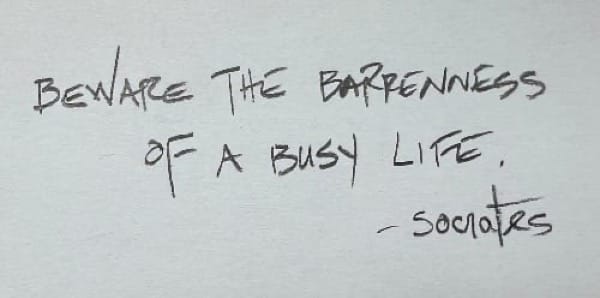 BEWARE THE BARRENNESS
OF A BUSY LIFE.
- SOCRATES